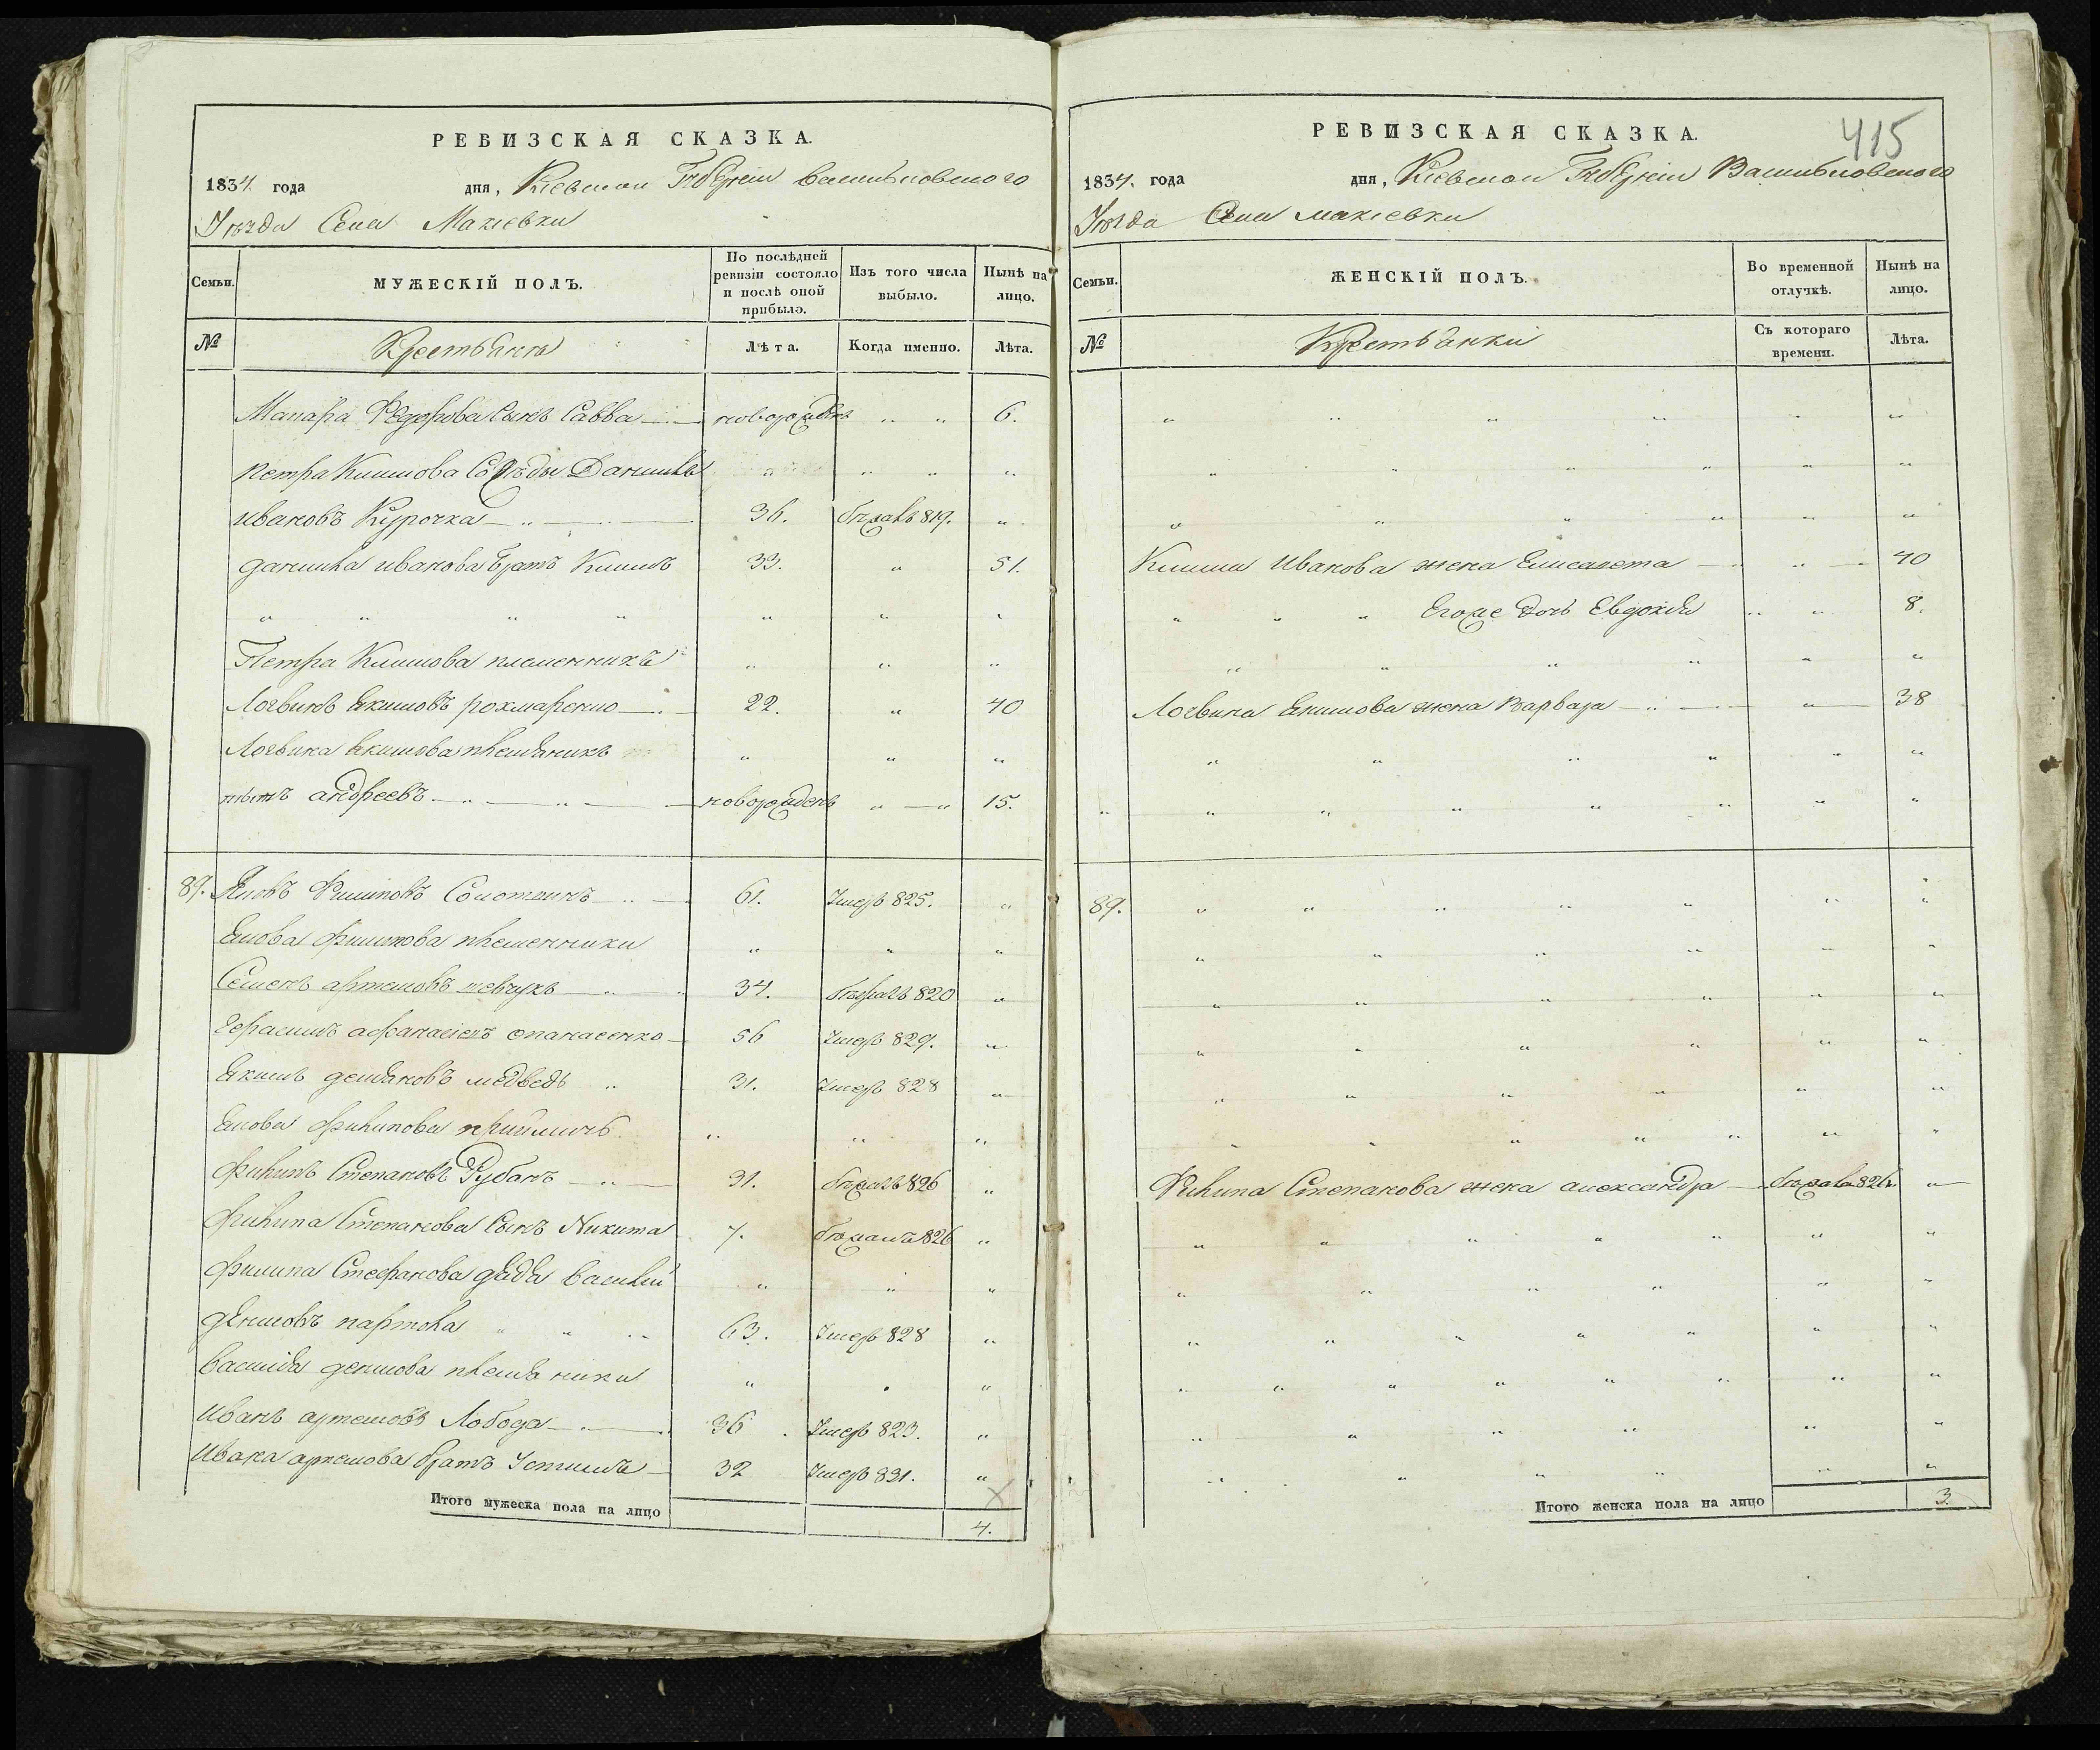 РЕВИЗСКАЯ СКАЗКА.
1834. года дня, Кіевской Губерніи Васильковскаго
Уѣзда Села Макіевки
Семьи. МУЖЕСКІЙ ПОЛЪ. По послѣдней ревизіи состояло и послѣ оной прибыло. Изъ того числа выбыло. Нынѣ на лицо.
№ Крестьяне Лѣта. Когда именно. Лѣта.
Макара Федорова сынъ Савва новорожденъ " " 6.
петра Климова Сосѣды Данило " " " "
ивановъ Курочка 36. бѣжалъ 819. "
данила иванова братъ Климъ 33. " 51.
" " " " " " "
Петра Климова племенникъ " " "
Логвинъ Екимовъ рохмаренко 22. " 40
Логвина Екимова племяникъ " " "
андреевъ новорожденъ " " 15.
89. Яковъ Филиповъ 61. Умеръ 825. "
Якова Филипова племенники " " "
Семенъ артемовъ шевчукъ 34. бѣжалъ 820 "
Герасимъ афанасіевъ опанасенко 56 Умеръ 829. "
Екимъ демяновъ медведь " 31. Умеръ 828 "
Якова Филипова пріймичъ " " "
Филипъ Степановъ Рубанъ 31. бѣжалъ 826 "
Филипа Степанова сынъ Никита 7. бѣжалъ 826 "
Филипа Стефанова дядя василій " " "
денисовъ партола " " " 63. Умеръ 828 "
василія денисова племяники " " "
Иванъ артемовъ Лобода 36 Умеръ 823. "
Ивана артемова братъ Устимъ 32 Умеръ 831. "
Итого мужеска пола на лицо 4.
415
РЕВИЗСКАЯ СКАЗКА.
1834. года дня, Кіевской Губерніи Васильковскаго
Уѣзда Села макіевки
Семьи. ЖЕНСКІЙ ПОЛЪ. Во временной отлучкѣ. Нынѣ на лицо.
№ Крестьянки Съ котораго времени. Лѣта.
Клима Иванова жена Елисавета " 40
" " " Егоже дочь Евдокія " " 8.
Логвина Екимова жена Варвара " 38
89.
Филипа Степанова жена александра бѣжала 826. "
Итого женска пола на лицо 3.